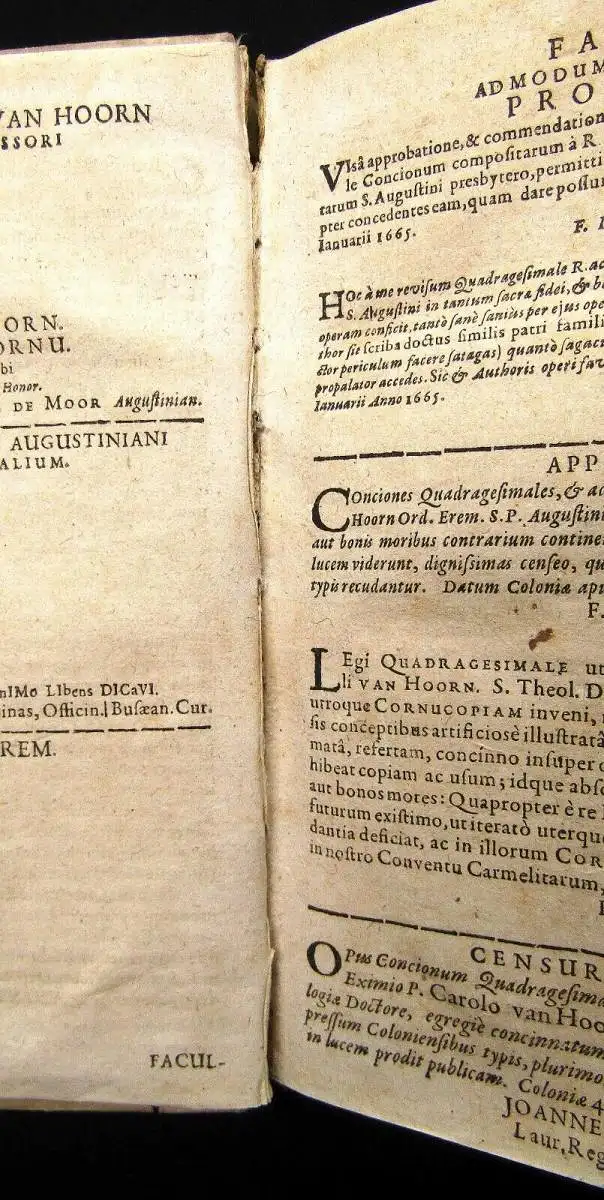 VAN HOORN
SSORI
ORN.
ORNU.
bi
Honor.
DE MOOR Auguſtinian.
AUGUSTINIANI
ALIUM.
nIMo LIbens DICaVI.
inas, Officin. Buſæan. Cur.
REM.
FACUL-
FA
AD MODUM
PRO
VIsâ approbatione, & commendation
le Concionum compoſitarum à R
tarum S. Auguſtini presbytero, permitti
pter concedentes eam, quam dare poſſum
Ianuarii 1665.
F.
HOc à me reviſum Quadrageſimale R. ac
S. Auguſtini in tantum ſacræ fidei, & b
operam conficit, tantò ſanè ſaniùs per ejus ope
thor ſit ſcriba doctus ſimilis patri famili
ctor periculum facere ſatagas) quantò ſagac
propalator accedes. Sic & Authoris operi fav
Ianuarii Anno 1665.
APP
COnciones Quadrageſimales, & ac
Hoorn Ord. Erem. S. P. Auguſtini
aut bonis moribus contrarium contine
lucem viderunt, digniſſimas cenſeo, qu
typis recudantur. Datum Coloniæ api
F.
LEgi QUADRAGESIMALE ut
li VAN HOORN. S. Theol. D
utroque CORNUCOPIAM inveni,
ſis conceptibus artificiosè illuſtratâ
matâ, refertam, concinno inſuper
hibeat copiam ac uſum; idque abſ
aut bonos mores: Quapropter è re
futurum exiſtimo, ut iteratò uterque
dantia deficiat, ac in illorum COR
in noſtro Conventu Carmelitarum,
CENSUR
OPus Concionum Quadrageſima
Eximio P. Carolo van Hoo
logiæ Doctore, egregiè concinnatum
preſſum Colonienſibus typis, plurimo
in lucem prodit publicam. Coloniæ 4
JOANNE
Laur. Reg